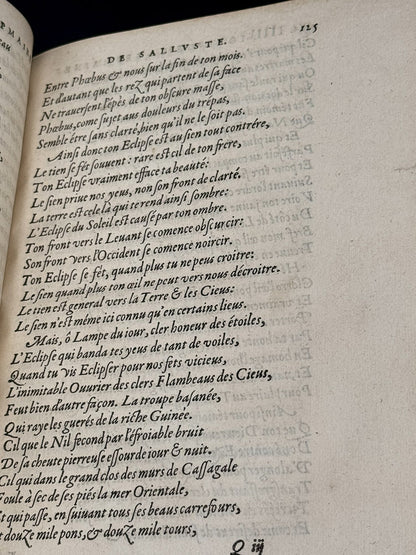 DE SALLVSTE. 125
Entre Phœbus & nous sur la fin de ton mois.
Et d'autant que les reZ qui partent de sa face
Ne trauersent l'épés de ton obscure masse,
Phœbus, come sujet aus douleurs du trépas,
Semble étre sans clarté, bien qu'il ne le soit pas.
Ainsi donc ton Eclipse est au sien tout contrére,
Le tien se fét souuent: rare est cil de ton frere,
Ton Eclipse vraiment efface ta beauté:
Le sien priue nos yeus, non son front de clarté.
La terre est celà qui te rend ainsi sombre:
L'Eclipse du Soleil est causé par ton ombre.
Ton front vers le Leuant se comence obscurcir:
Son front vers l'Occident se comence noircir.
Ton Eclipse se fét, quand plus tu ne peus croitre:
Le sien quand plus ton œil ne peut vers nous décroitre.
Le tien est general vers la Terre & les Cieus:
Le sien n'est méme ici connu qu'en certains lieus.
Mais, ô Lampe du iour, cler honeur des étoiles,
L'Eclipse qui banda tes yeus de tant de voiles,
Quand tu vis Eclipser pour nos féts vicieus,
L'inimitable Ouurier des clers Flambeaus des Cieus,
Feut bien d'autre façon. La troupe basanée,
Qui raye les guerés de la riche Guinée.
Cil que le Nil fecond par l'éfroiable bruit
De sa cheute pierreuse essourde iour & nuit.
Cil qui dans le grand clos des murs de Cassagale
Foule à sec de ses piés la mer Orientale,
Et qui passe, en suiuant tous ses beaus carrefours,
mile pons, & douZe mile tours,
Q iij